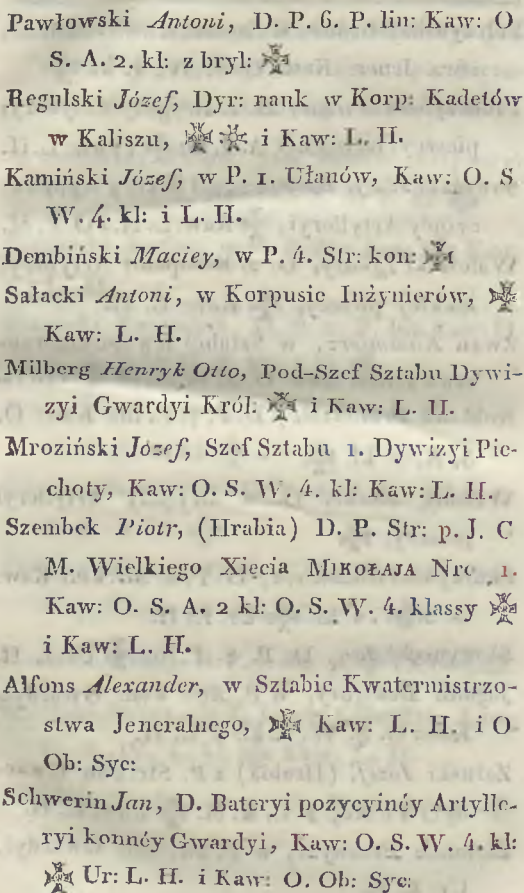 Pawłowski Antoni, D. P. 6. P. lin: Kaw: O
S. A. 2. kl: z bryl:
Regulski Józef, Dyr: nauk w Korp: Kadetów
w Kaliszu, i Kaw: L. H.
Kamiński Józef, w P. 1. Ułanów, Kaw: O. S
W. 4. kl: i L. H.
Dembiński Maciey, w P. 4. Str: kon:
Sałacki Antoni, w Korpusie Inżynierów,
Kaw: L. H.
Milberg Henryk Otto, Pod-Szef Sztabu Dywi-
zyi Gwardyi Król: i Kaw: L. H.
Mroziński Józef, Szef Sztabu 1. Dywizyi Pie-
choty, Kaw: O. S. W. 4. kl: Kaw: L. H.
Szembek Piotr, (Hrabia) D. P. Str: p. J. C
M. Wielkiego Xięcia MIKOŁAJA Nro 1.
Kaw: O. S. A. 2 kl: O. S. W. 4. klassy
i Kaw: L. H.
Alfons Alexander, w Sztabie Kwatermistrzo-
stwa Jeneralnego, Kaw: L. H. i O
Ob: Syc:
Schwerin Jan, D. Bateryi pozycyinéy Artylle-
ryi konnéy Gwardyi, Kaw: O. S. W. 4. kl:
Ur: L. H. i Kaw: O. Ob: Syc: